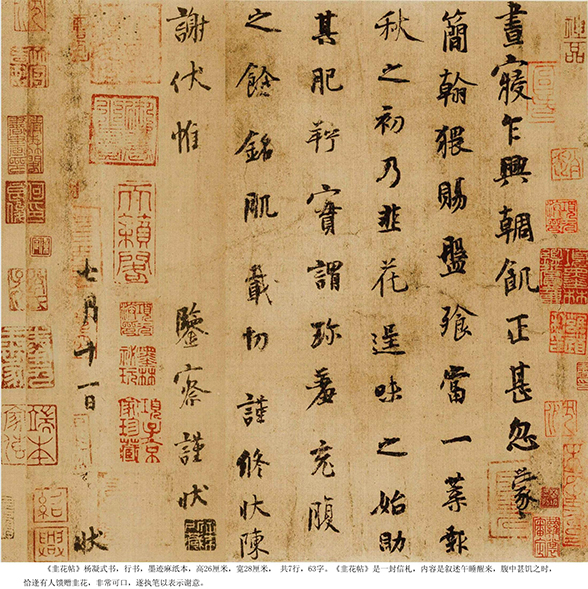 神品
晝寢乍興輖飢正甚忽蒙
簡翰猥賜盤飧當一葉報
秋之初乃韭花逞味之始助
其肥羜實謂珎羞充腹
之餘銘肌載切謹修狀陳
謝伏惟 鑒察謹狀
天籟閣
項子京家珍藏
七月十一日 狀
紹興
《韭花帖》杨凝式书,行书,墨迹麻纸本,高26厘米,宽28厘米, 共7行,63字。《韭花帖》是一封信札,内容是叙述午睡醒来,腹中甚饥之时,
恰逢有人馈赠韭花,非常可口,遂执笔以表示谢意。